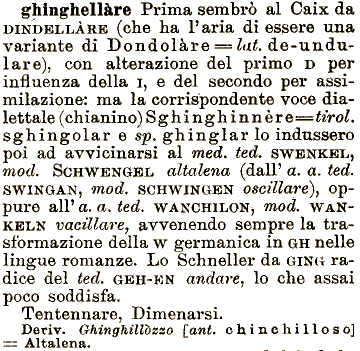 ghinghellàre Prima sembrò al Caix da
DINDELLÀRE (che ha l'aria di essere una
variante di Dondolàre = lat. de-undu-
lare), con alterazione del primo D per
influenza della I, e del secondo per assi-
milazione: ma la corrispondente voce dia-
lettale (chianino) Sghinghinnère = tirol.
sghingolar e sp. ghinglar lo indussero
poi ad avvicinarsi al med. ted. SWENKEL,
mod. SCHWENGEL altalena (dall' a. a. ted.
SWINGAN, mod. SCHWINGEN oscillare), op-
pure all' a. a. ted. WANCHILON, mod. WAN-
KELN vacillare, avvenendo sempre la tra-
sformazione della W germanica in GH nelle
lingue romanze. Lo Schneller da GING ra-
dice del ted. GEH-EN andare, lo che assai
poco soddisfa.
Tentennare, Dimenarsi.
Deriv. Ghinghillòzzo [ant. chinchilloso]
= Altalena.